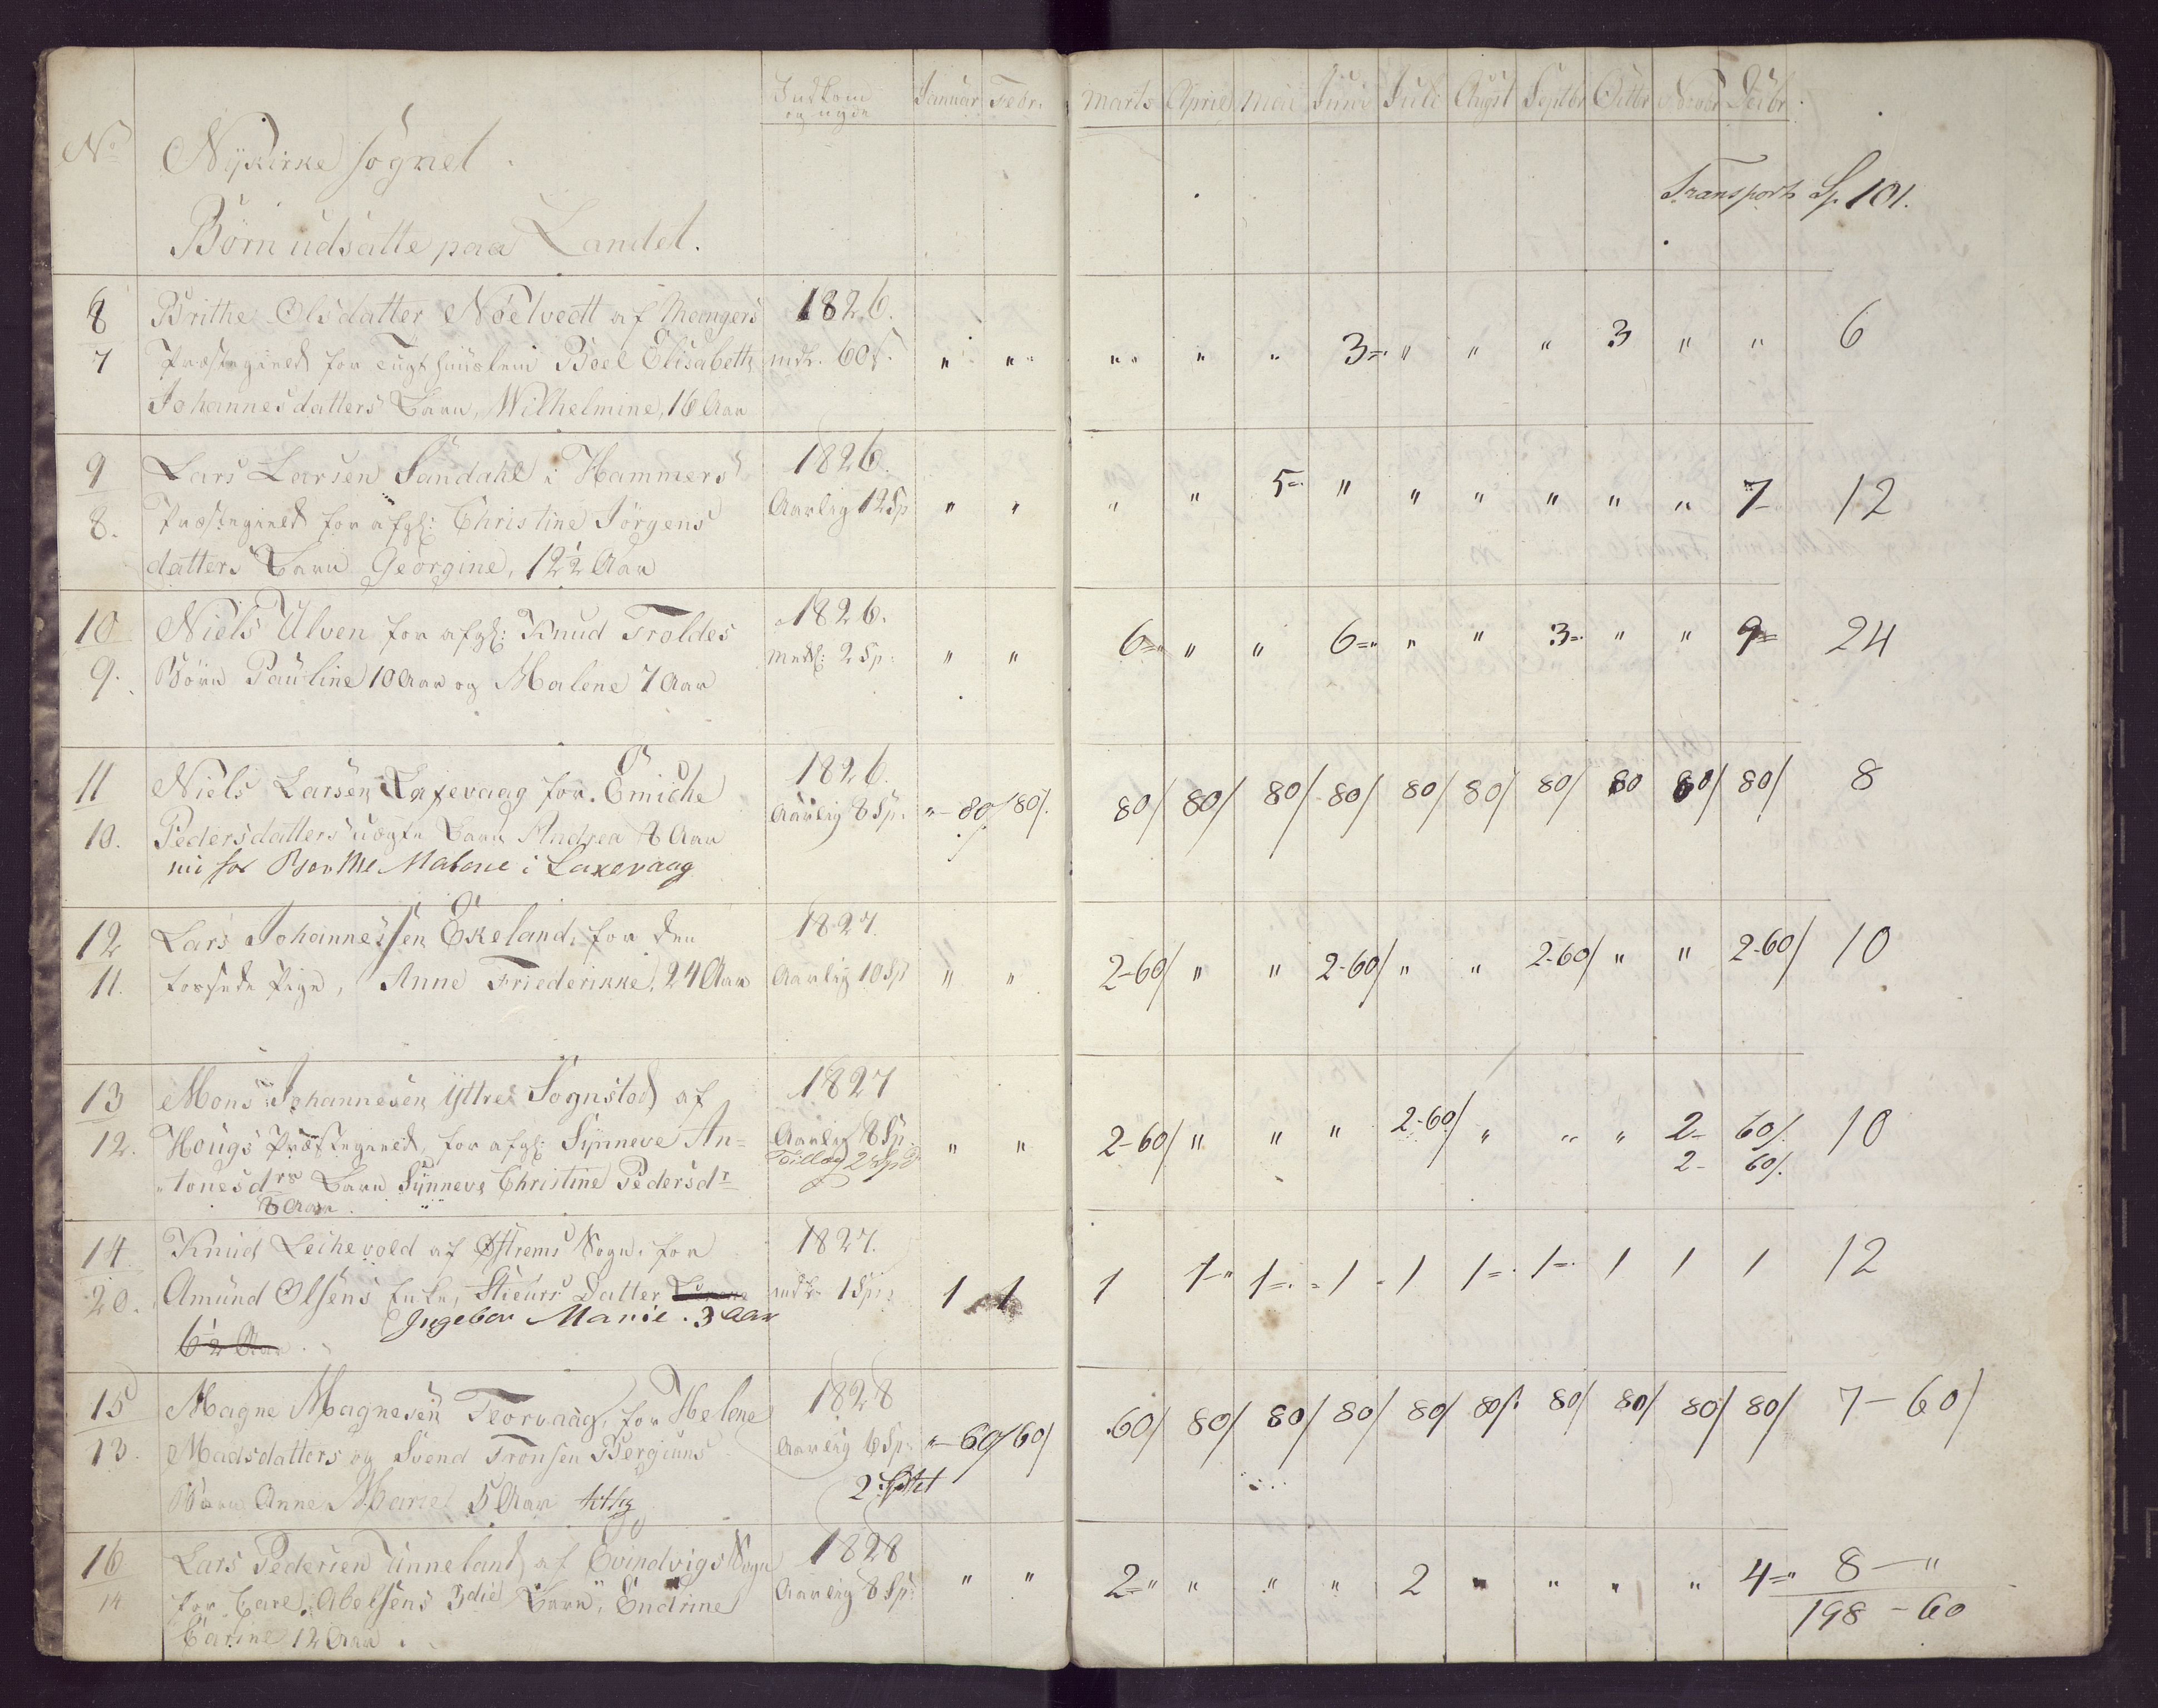 No Nykirke Sognet. Indkom og nyde Januar Febr. Marts April Mai Juni Juli Augst Septbr Octbr Novbr Decbr.
Transport Sp. 101.
Börn udsatte paa Landet.
8 Brithe Olsdatter Noelvedt af Mangers 1826.
7 Præstegield for Tugthuuslem Boel Elisabeth mdl. 60 s. " " " " " 3= " " " 3 " " 6
Johannesdatters Barn, Wilhelmine, 16 Aar
9 Lars Larsen Sandahl i Hammers 1826.
8. Præstegield for afgl: Christine Jörgens Aarlig 12 Sp " " " " 5= " " " " " " 7- 12
datters Barn Georgine, 12½ Aar
10 Niels Ulven for afgl: Knud Troldes 1826.
9. Börn Pauline 10 Aar og Malene 7 Aar mndl: 2 Sp: " " 6= " " 6= " " 3= " " 9= 24
11 Niels Larsen Laxevaag for Emiche 1826.
10. Pedersdatters uægte Barn Andrea 8 Aar Aarlig 8 Sp. "-80/ 80/. 80/ 80/ 80/ 80/ 80/ 80/ 80/ 80 80/ 80/ 8
nu for Berthe Malene i Laxevaag
12 Lars Johannessen Ekeland, for den 1827.
11. Pige, Anne Friederikke, 24 Aar Aarlig 10 Sp " " 2-60/ " " 2-60/ " " 2-60/ " " 2-60/ 10
13 Mons Johannesen Yttre Sognstod af 1827
12. Hougs Præstegield, for afgl: Synneve An= Aarlig 8 Sp. " " 2-60/ " " " 2-60/ " " " 2- 60/. 10
Tillæg 2 Spd 2- 60/.
tonesdrs Barn Synneve Christine Pedersdr
8 Aar.
14 Knud Leihevold af Østrems Sogn, for 1827.
20. Amund Olsens Enke, Stieurs Datter mdl. 1 Sp: 1 1 1 1-" 1= 1 1 1= 1= 1 1 1 12
Ingebor Marie. 3 Aar
6½ Aar
15 Magne Magnesen Teorvaag, for Helene 1828
13. Madsdatters og Svend Tronsen Bergiuns Aarlig 6 Sp: "-60/ 60/ 60/ 80/ 80/ 80/ 80/ 80/. 80/ 80/ 80/ 80/ 7-60/
Barn Anne Marie 5 Aar
16 Lars Pedersen Unneland af Evindvigs Sogn 1828
14 for Carl Abelsens 3die Barn, Endrine Aarlig 8 Sp: " " 2=" " " " 2 " " " " 4=" 8-"
Carine 12 Aar.
198-60